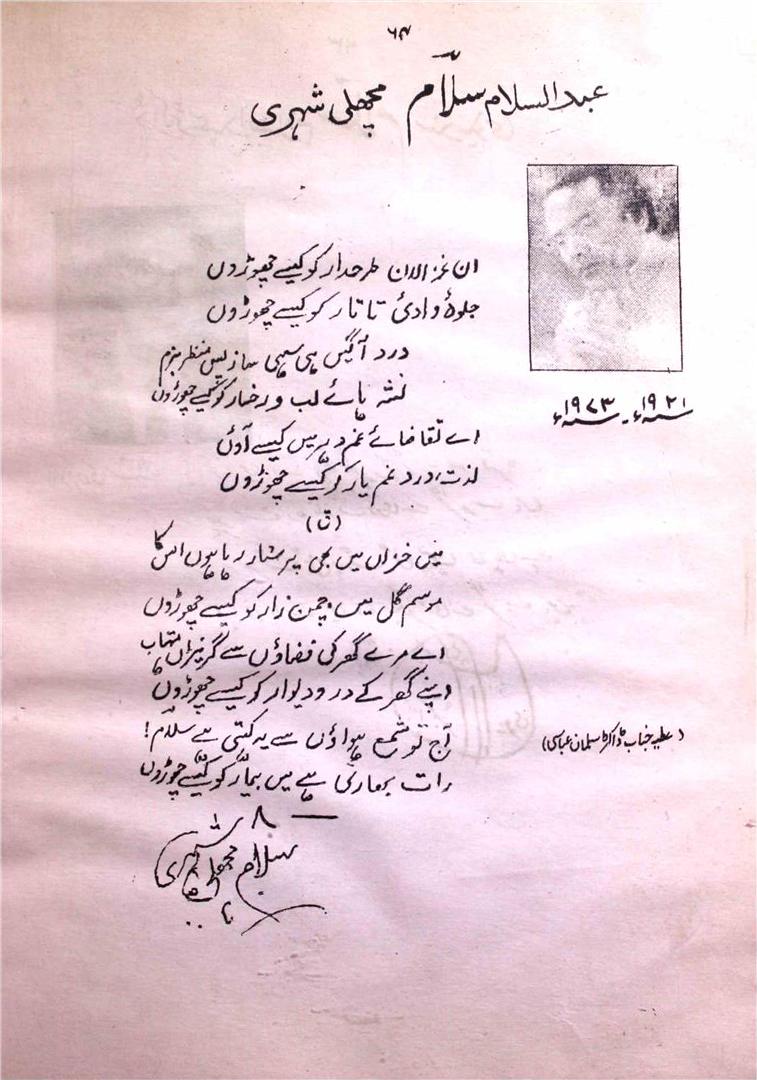 ۶۴
عبدالسلام سلاؔم مچھلی شہری
ان غزالان طرحدار کو کیسے چھوڑوں
جلوۂ وادئ تاتار کو کیسے چھوڑوں
درد آگیں ہی سہی ساز پس منظر بزم
نشہ ہائے لب و رخسار کو کیسے چھوڑوں
۱۹۲۱ء ۔ ۱۹۷۳ء
اے تقاضائے غم دہر میں کیسے آؤں
لذت درد غم یار کو کیسے چھوڑوں
(ق)
میں خزاں میں بھی پرستار رہا ہوں اس کا
موسم گل میں چمن زار کو کیسے چھوڑوں
اے مرے گھر کی فضاؤں سے گریزاں مہتاب
اپنے گھر کے در و دیوار کو کیسے چھوڑوں
آج تو شمع ہواؤں سے یہ کہتی ہے سلام!
(عطیہ جناب ڈاکٹر سلمان عباسی)
رات بھاری ہے میں بیمار کو کیسے چھوڑوں
سلام مچھلی شہری